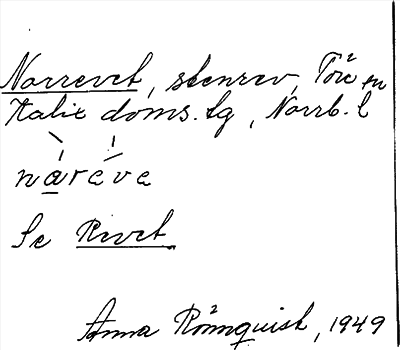 Norrevet, stenrev, Töre sn
Kalix doms.lg, Norrb. l
nàréve
Se Revet
Anna Rönnquist, 1949